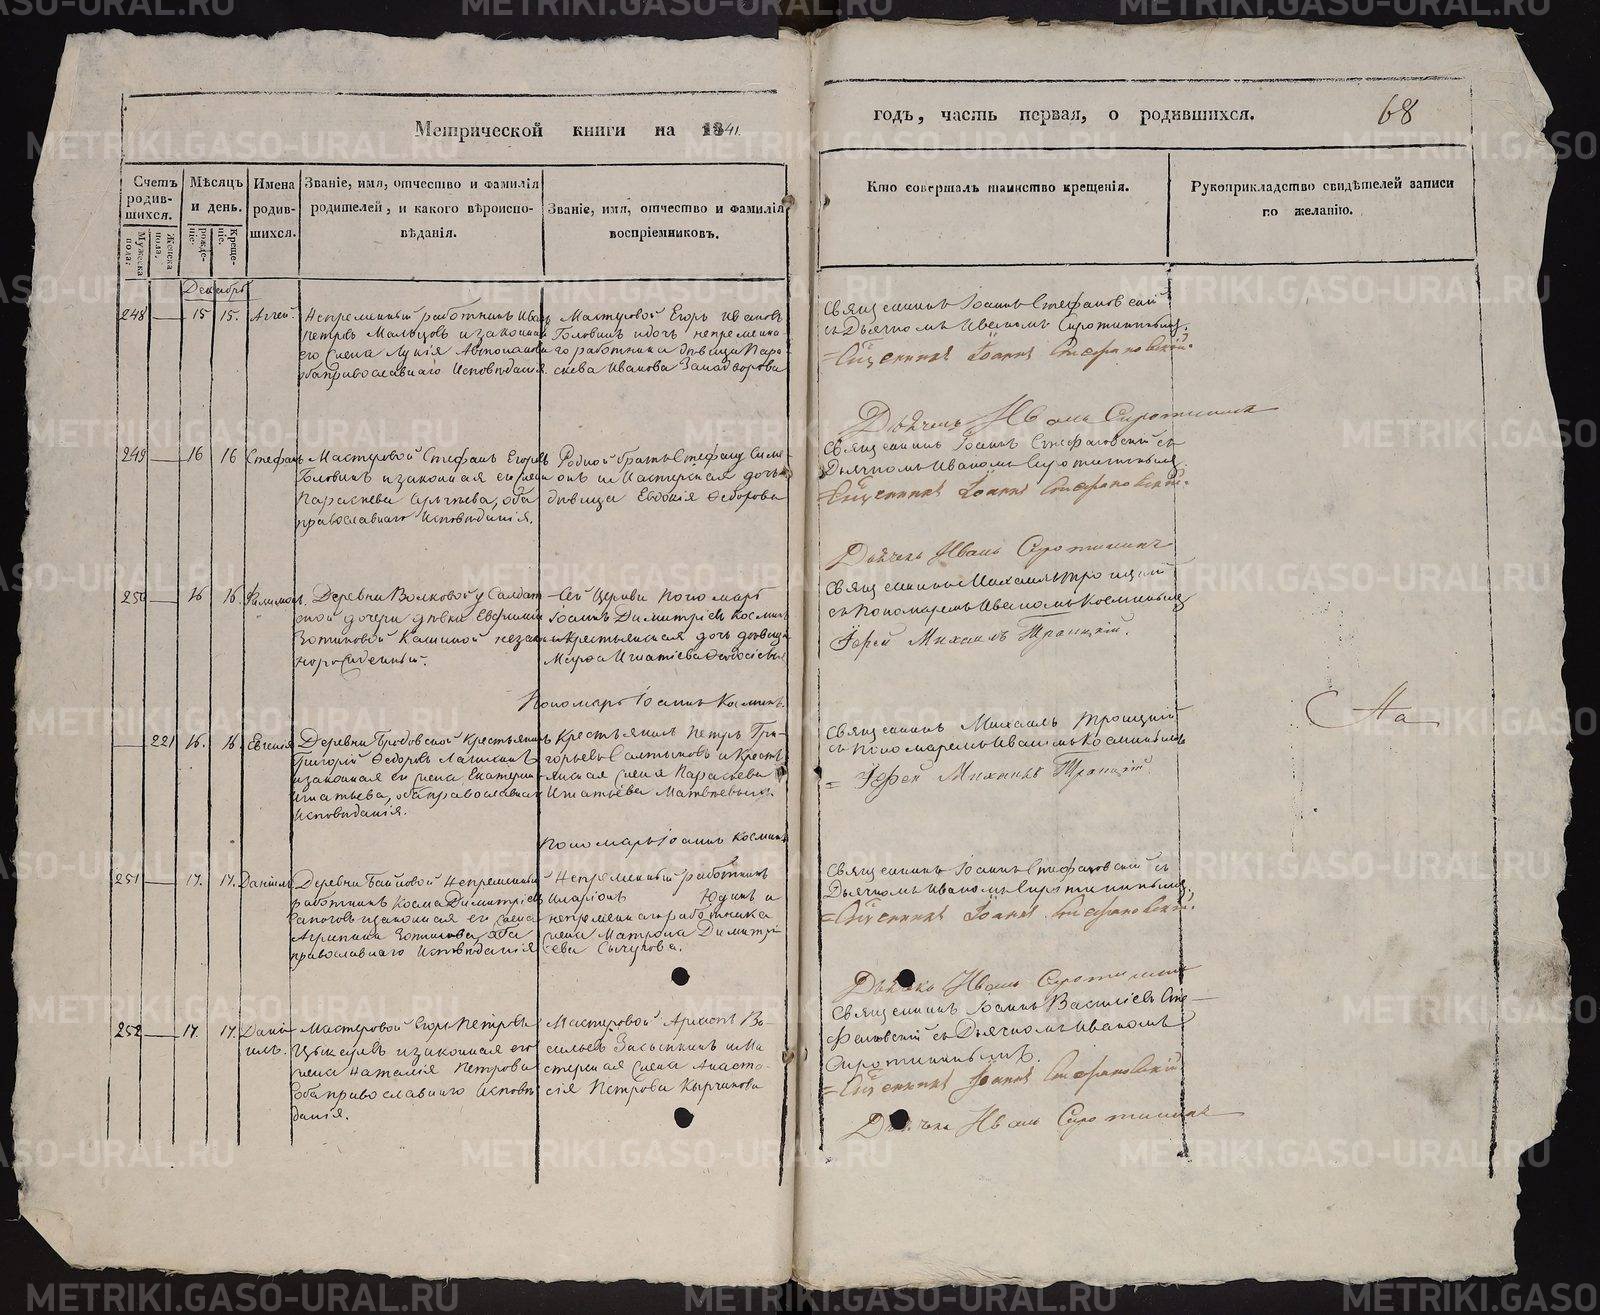 Метрической книги на 1841.
годъ, часть первая, о родившихся.
68
Счетъ родив-шихся.
Мужеска пола:
Женска пола.
Мѣсяцъ и день.
рожде-ніе:
Креще-ніе.
Имена родив-шихся.
Званіе, имя, отчество и фамилія родителей, и какого вѣроиспо-вѣданія.
Званіе, имя, отчество и фамилія воспріемниковъ.
Кто совершалъ таинство крещенія.
Рукоприкладство свидѣтелей записи по желанію.
Декабрь
248 — 15 15. Аггей.
Непременный работникъ Иванъ
Петровъ Мальцовъ и законная
его жена Лукія
оба православнаго Исповѣданія.
Мастеровой Егоръ Ивановъ
Головинъ и дочь непременна-
го работника дѣвица Пара-
скева Иванова
Священникъ Іоаннъ Стефановскій
съ Дьячкомъ Иваномъ Сиротинымъ.
Священникъ Іоаннъ Стефановскій.
Дьячекъ Иванъ Сиротинъ
249 — 16 16 Стефанъ
Мастеровой Стефанъ Егоровъ
Головинъ и законная его жена
Параскева оба
православнаго Исповѣданія.
Родной братъ Стефану Симе-
онъ и Мастерская дочь
дѣвица Евдокія Ѳедорова
Священникъ Іоаннъ Стефановскій съ
Дьячкомъ Иваномъ
Священникъ Іоаннъ Стефановскій.
Дьячекъ Иванъ Сиротинъ
250 — 16 16 Филимонъ.
Деревни Волковой у Солдат-
ской дочери дѣвки Евфиміи
Зотиковой Кашиной незакон-
норожденный.
Сей Церкви Пономарь
Іоаннъ Димитріевъ Косминъ
и Крестьянская дочь дѣвица
Марѳа Игнатіева
Священникъ Михаилъ Троицкій
съ Пономаремъ Иваномъ Косминымъ
Іерей Михаилъ Троицкій.
Пономарь Іоаннъ Косминъ.
На
— 221 16. 16. Евгенія
Деревни Бродовской Крестьянинъ
Григорій Ѳедоровъ
и законная его жена Екатерина
Игнатьева, оба православнаго
Исповѣданія.
Крестьянинъ Петръ Гри-
горьевъ Салтыковъ и Кресть-
янская жена Параскева
Игнатьева Матвѣевыхъ
Священникъ Михаилъ Троицкій
съ Пономаремъ Иваномъ Косминымъ
Іерей Михаилъ Троицкій
Пономарь Іоаннъ Косминъ
251 — 17. 17. Даніилъ
Деревни Байновой Непременный
работникъ Косма Димитріевъ
Сапоговъ и законная его жена
Агрипина Зотикова, оба
православнаго Исповѣданія
Непременный работникъ
Иларіонъ Юдинъ и
непременнаго работника
жена Матрона Димитрі-
ева Сычугова.
Священникъ Іоаннъ Стефановскій съ
Дьячкомъ Иваномъ Сиротинымъ
Священникъ Іоаннъ Стефановскій.
Иванъ Сиротинъ
252 — 17. 17. Дані-
илъ.
Мастеровой Егоръ Петровъ
и законная его
жена Наталія Петрова
оба православнаго Исповѣ-
данія.
Мастеровой Архипъ Ва-
сильевъ Засыпкинъ и Ма-
стерская жена Анаста-
сія Петрова Кырчикова
Священникъ Іоаннъ Васильевъ Сте-
фановскій съ Дьячкомъ Иваномъ
Сиротинымъ.
Священникъ Іоаннъ Стефановскій
Иванъ Сиротинъ
METRIKI.GASO-URAL.RU